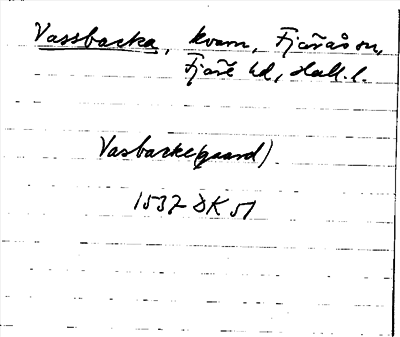 Vassbacka, kvarn, Fjärås sn,
Fjäre hd, Hall. l.
Vasbacke(gaard)
1537 DK 51